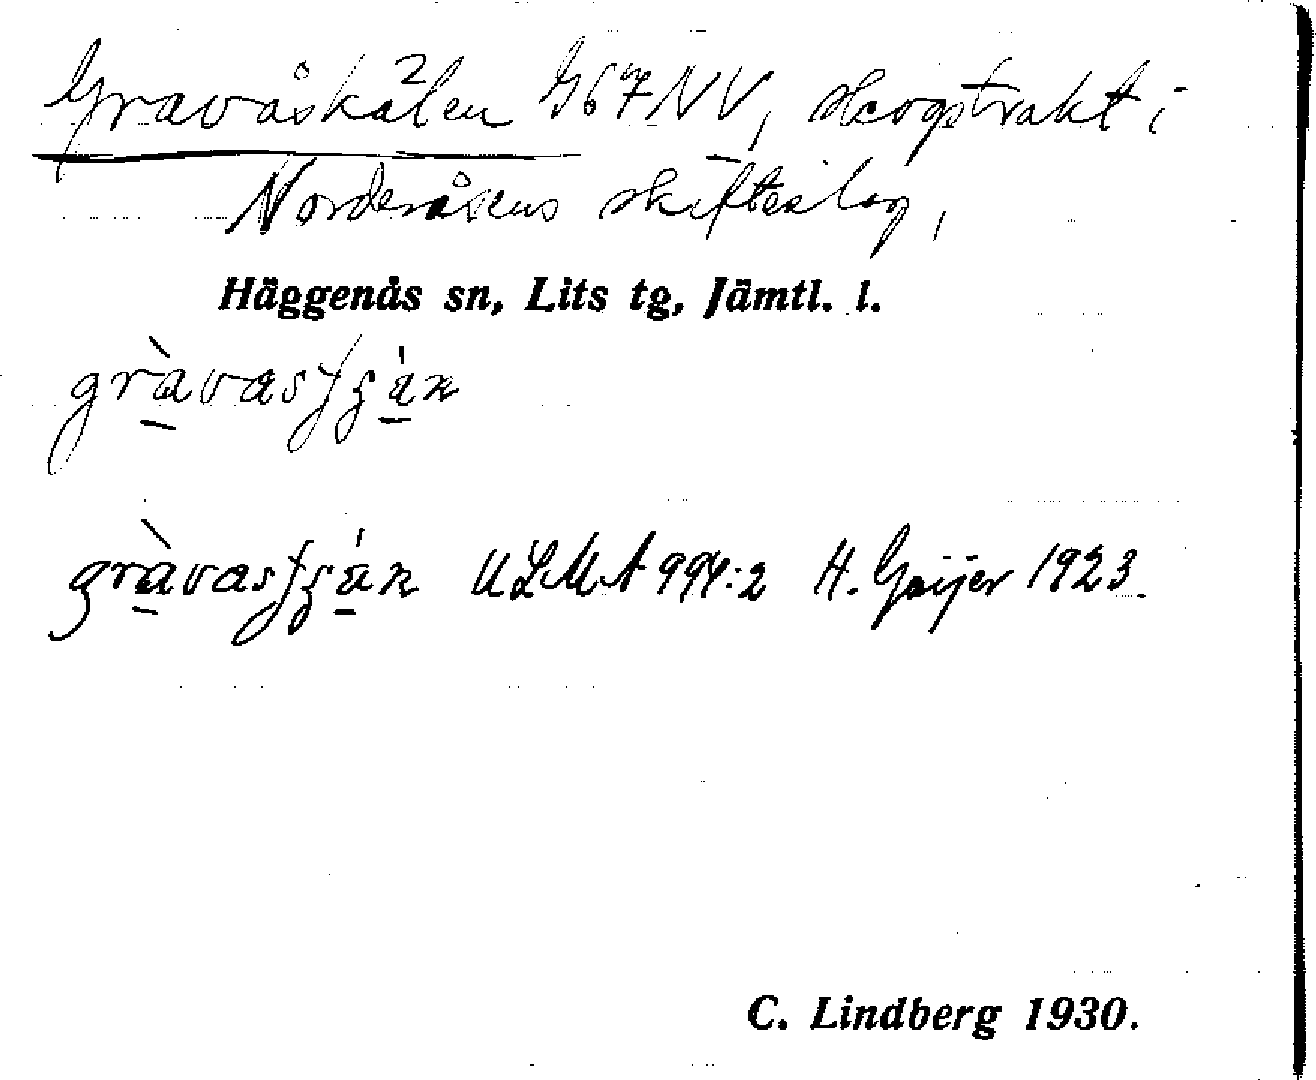 Gravåskälen G67NV, skogstrakt i
Norderåsens skifteslag,
Häggenås sn, Lits tg, Jämtl. l.
ULMA 994:2 H. Geijer 1923.
C. Lindberg 1930.